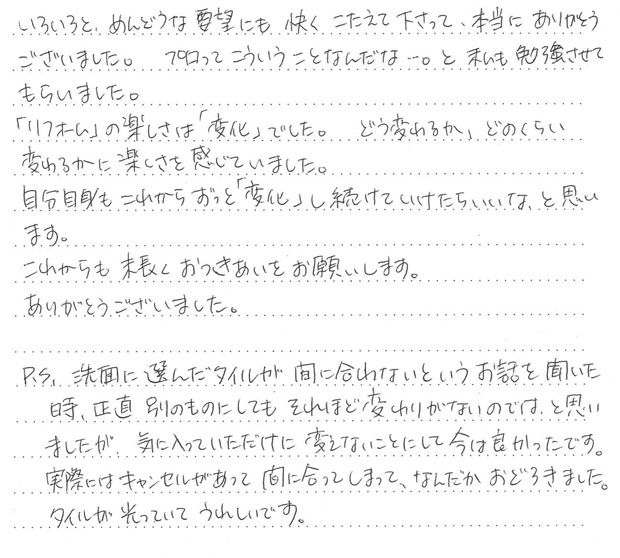 いろいろと、めんどうな要望にも 快く こたえて下さって、本当に ありがとう
ございました。 プロって こういうことなんだな…。と 私も 勉強させて
もらいました。
「リフォーム」の楽しさは「変化」でした。 どう変わるか、どのくらい
変わるかに 楽しさを 感じていました。
自分自身も これから ずっと「変化」し 続けていけたらいいな、と思い
ます。
これからも 末長く おつきあいを お願いします。
ありがとうございました。
P.S. 洗面に 選んだタイルが 間に合わないという お話を 聞いた
時、正直 別のものにしても それほど 変わりがないのでは、と思い
ましたが、気に入っていただけに 変えないことにして 今は 良かったです。
実際には キャンセルがあって 間に合ってしまって、なんだか おどろきました。
タイルが 光っていて うれしいです。